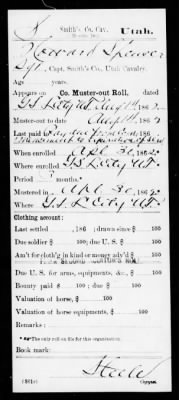 S | Smith's Co. Cav. | Utah.
Howard Spencer
Sgt., Capt. Smith's Co., Utah Cavalry.
Age years.
Appears on Co. Muster-out Roll, dated
G. S. L. City U.T. Aug 14, 1862.
Muster-out to date Aug 14, 1862.
Last paid to
When enrolled Apl 30, 1862.
Where enrolled G. S. L. City U.T.
Period 3 months.
Mustered in Apl 30, 1862.
Where G. S. L. City U.T.
Clothing account:
Last settled , 186 ; drawn since $ 100
Due soldier $ 100; due U. S. $ 100
Am't for cloth'g in kind or money adv'd $ 100
Due U. S. for arms, equipments, &c., $ 100
Bounty paid $ 100; due $ 100
Valuation of horse, $ 100
Valuation of horse equipments, $ 100
Remarks:
Book mark:
(361c) Copyist.